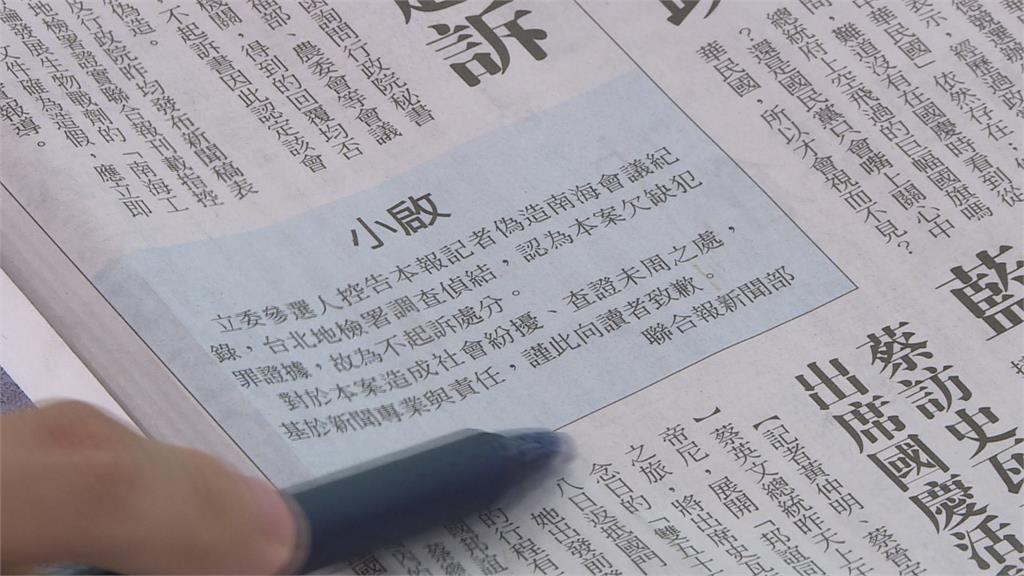 訴
因詢問行政院秘書
部、農委會等會議
機關，得到的回覆均否
不起訴書因此認定該會
為偽造。
行政院昨均發布新聞稿表
檢署證實聯合報刊載指控
發展生物戰劑的「南海工
文件確為造假，應立即
報導。
小啟
立委參選人控告本報記者偽造南海會議紀
錄，台北地檢署調查偵結，認為本案欠缺犯
罪證據，故為不起訴處分。
對於本案造成社會紛擾、查證未周之處，
基於新聞專業與責任，謹此向讀者致歉。
聯合報新聞部
表示，經歷過政
中華民國」依然存在，
，難道沒有在國慶時看到從
總統府上空飛過的巨幅國旗嗎
？還是國民黨只會矇上關心中
華民國，所以才會視而不見？
藍
蔡訪史瓦
出席國慶活
【記者黃仲明、蔡晉
蔡英文總統昨天上午
帝尼，展開「邦誼
之旅，將出席史瓦
念日的「雙五
八日返抵國門
她出發前
的行程有